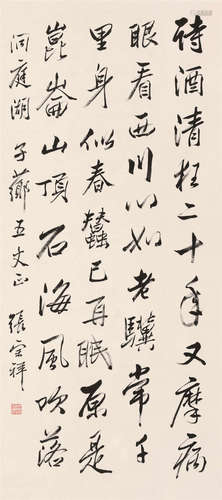 詩酒清狂二十年又摩病
眼看西川心如老驥常千
里身似春蠶已再眠原是
崑崙山頂石海風吹落
洞庭湖 子薌五丈正 張宗祥